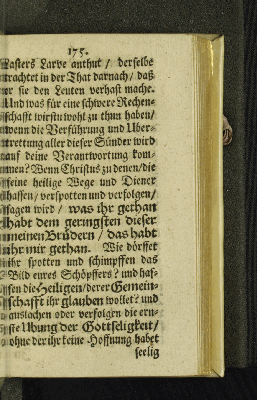 175.
Lasters Larve anthut / derselbe
trachtet in der That darnach / daß
er sie den Leuten verhast mache.
Und was für eine schwere Rechen-
schafft wirstu wohl zu thun haben/
wenn die Verführung und Uber-
trettung aller dieser Sünder wird
auf deine Verantwortung kom-
men? Wenn Christus zu denen/die
seine heilige Wege und Diener
hassen/ verspotten und verfolgen/
sagen wird / was ihr gethan
habt dem geringsten dieser
meinen Brüdern / das habt
ihr mir gethan. Wie dörffet
ihr spotten und schimpffen das
Bild eures Schöpffers? und has-
sen die Heiligen/derer Gemein-
schafft ihr glauben wollet? und
auslachen oder verfolgen die ern-
ste Ubung der Gottseligkeit/
ohne der ihr keine Hoffnung habet
seelig